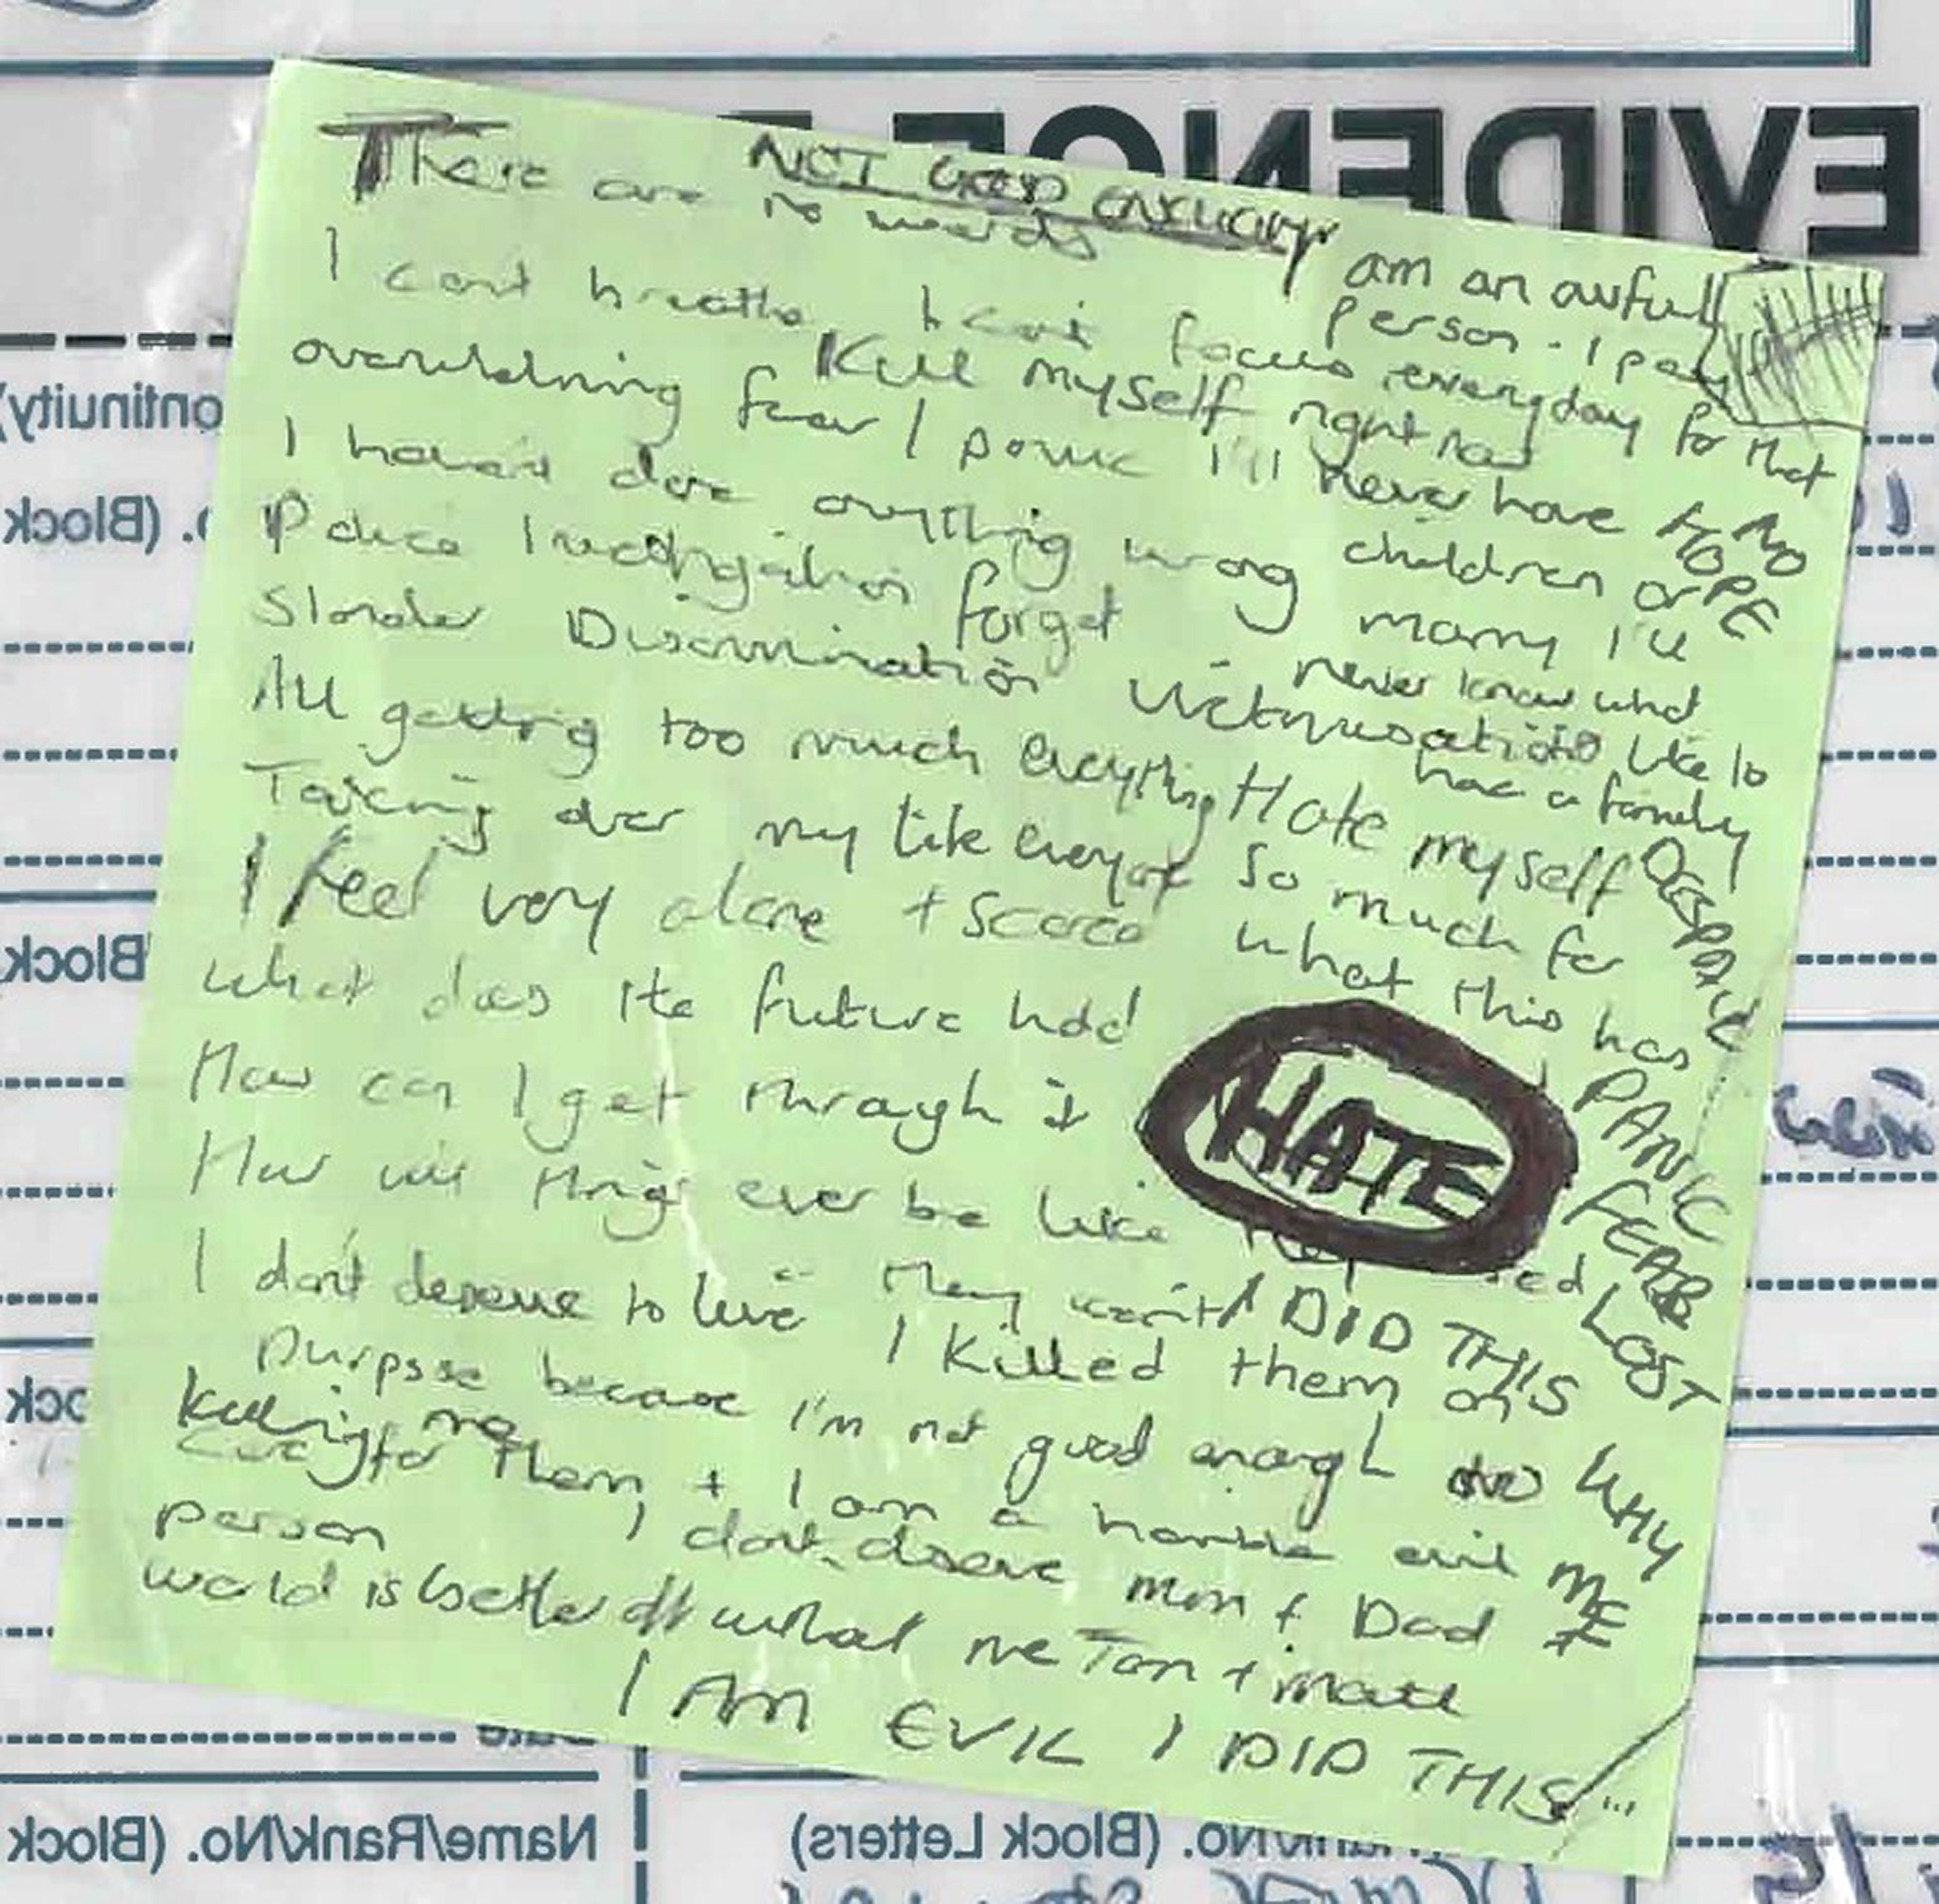 EVIDENCE
NOT GOOD ENOUGH
There are no words
I am an awful
person - I pay
everyday for that
I can't breathe I can't focus
Kill myself right now
overwhelming fear / panic
I'll never have
children or
marry I'll
never know what
like to
have a family
NO
HOPE
I haven't done anything wrong
Police Investigation forget
Slander Discrimination Victimisation
All getting too much everything
Taking over my life everyone
Hate myself
so much for
what this has
DESPAIR
I feel very alone + scared
What does the future hold
PANIC
FEAR
LOST
HATE
How can I get through it
How will things ever be like
I don't deserve to live They won't
I DID THIS
I killed them on
purpose because I'm not good enough to
WHY
ME
Killing me
care for them + I am a horrible evil
person I don't deserve Mum + Dad
world is better off without me Tom + Matt
I AM EVIL I DID THIS
ontinuity)
o. (Block
Block
ock
Date
Name/Rank/No. (Block
Rank/No. (Block Letters)